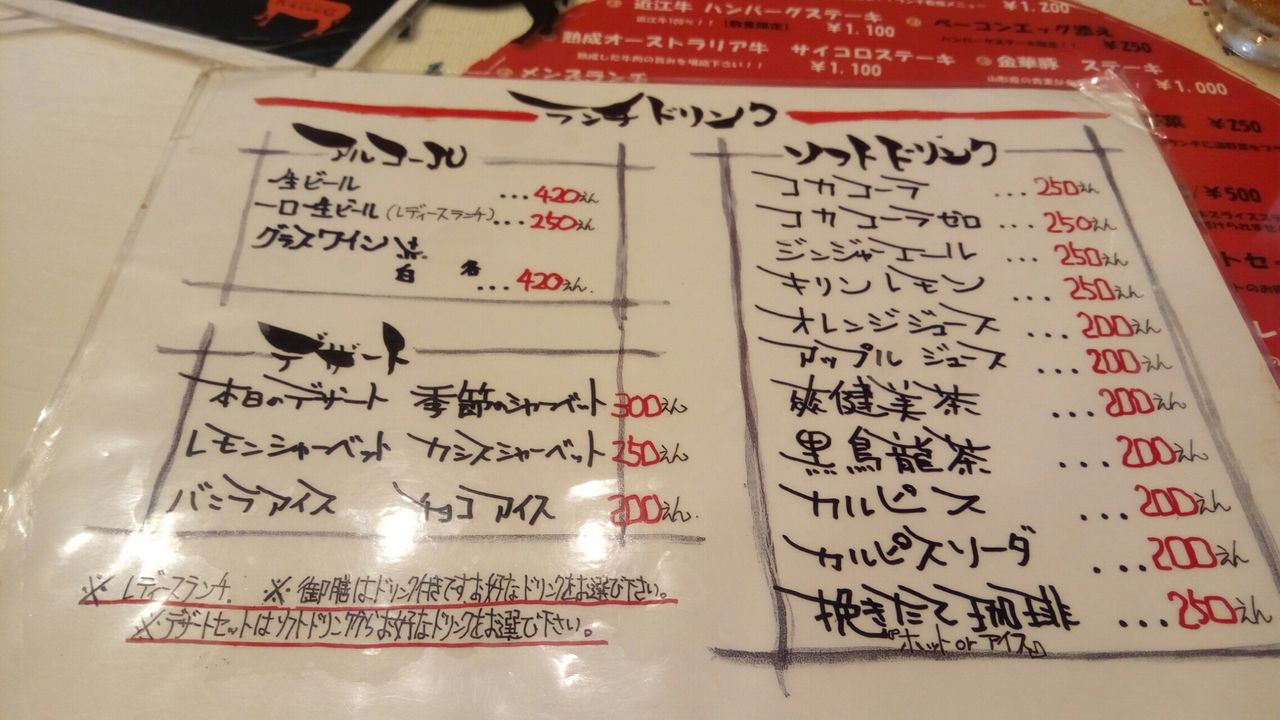 近江牛 ハンバーグステーキ
近江牛100%!! (数量限定) ¥1.100
熟成オーストラリア牛 サイコロステーキ
熟成した牛肉の旨みを堪能下さい!! ¥1.100
メンズランチ
¥1.200
ベーコンエッグ添え
¥250
金華豚 ステーキ
¥1.000
¥250
¥500
ランチドリンク
アルコール
生ビール ...420えん
一口生ビール(レディースランチ)...250えん
グラスワイン 赤
白 各 ...420えん.
デザート
本日のデザート 季節のシャーベット 300えん
レモンシャーベット カシスシャーベット 250えん
バニラアイス チョコアイス 200えん.
※レディースランチ. ※御膳はドリンク付きです。お好なドリンクをお選び下さい。
※デザートセットはソフトドリンクからお好なドリンクをお選び下さい。
ソフトドリンク
コカコーラ ...250えん
コカコーラゼロ ...250えん
ジンジャーエール ...250えん
キリンレモン ...250えん
オレンジジュース ...200えん
アップルジュース ...200えん
爽健美茶 ...200えん
黒烏龍茶 ...200えん
カルピス ...200えん
カルピスソーダ ...200えん
挽きたて珈琲 ...250えん
『ホット or アイス』